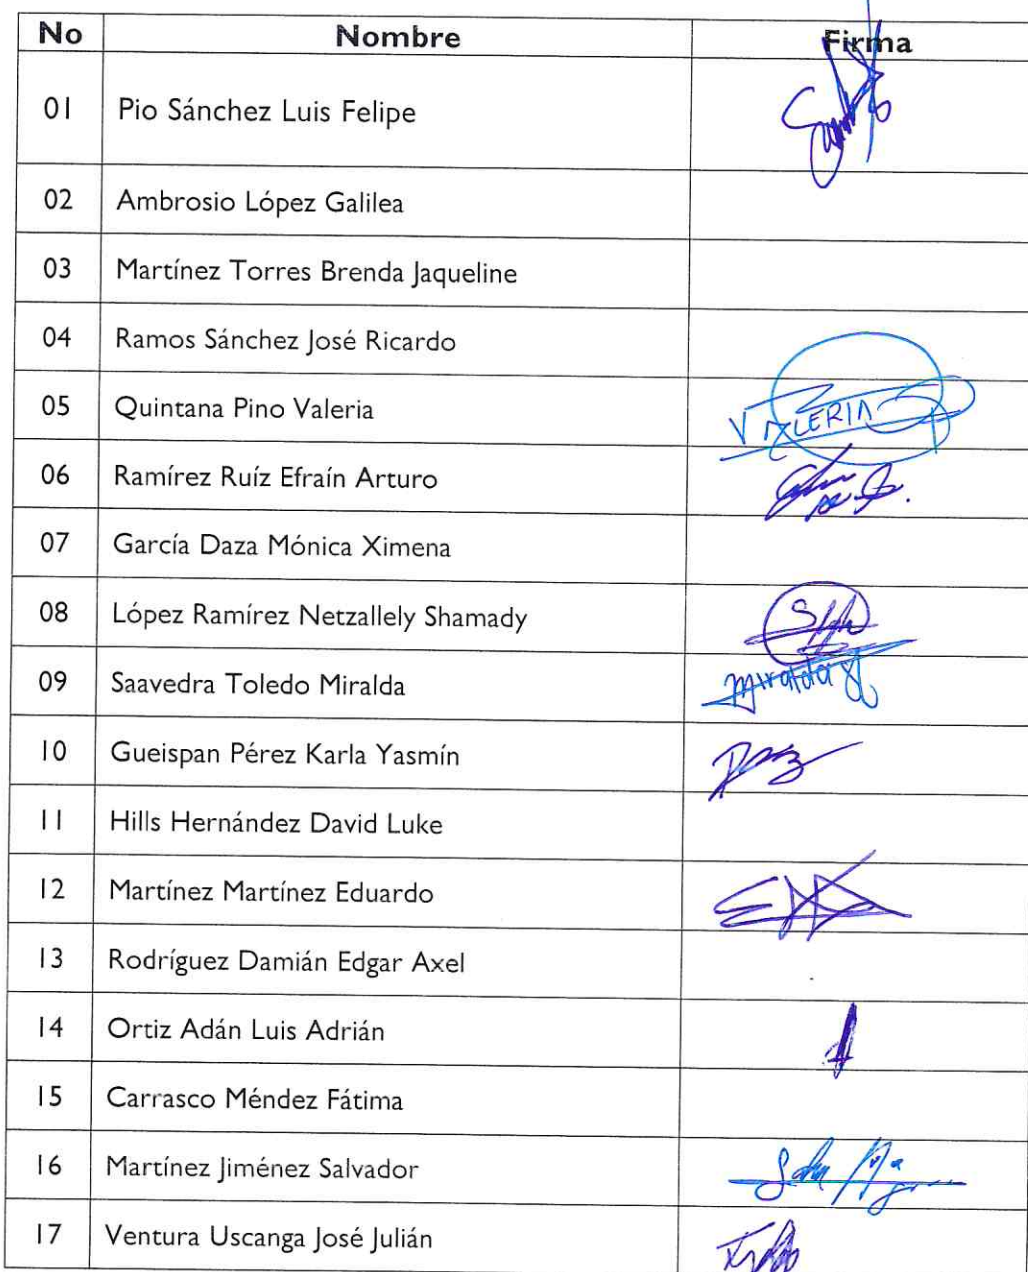 No Nombre Firma
01 Pio Sánchez Luis Felipe
02 Ambrosio López Galilea
03 Martínez Torres Brenda Jaqueline
04 Ramos Sánchez José Ricardo
05 Quintana Pino Valeria VALERIA
06 Ramírez Ruíz Efraín Arturo
07 García Daza Mónica Ximena
08 López Ramírez Netzallely Shamady
09 Saavedra Toledo Miralda Miralda
10 Gueispan Pérez Karla Yasmín
11 Hills Hernández David Luke
12 Martínez Martínez Eduardo
13 Rodríguez Damián Edgar Axel
14 Ortiz Adán Luis Adrián
15 Carrasco Méndez Fátima
16 Martínez Jiménez Salvador
17 Ventura Uscanga José Julián